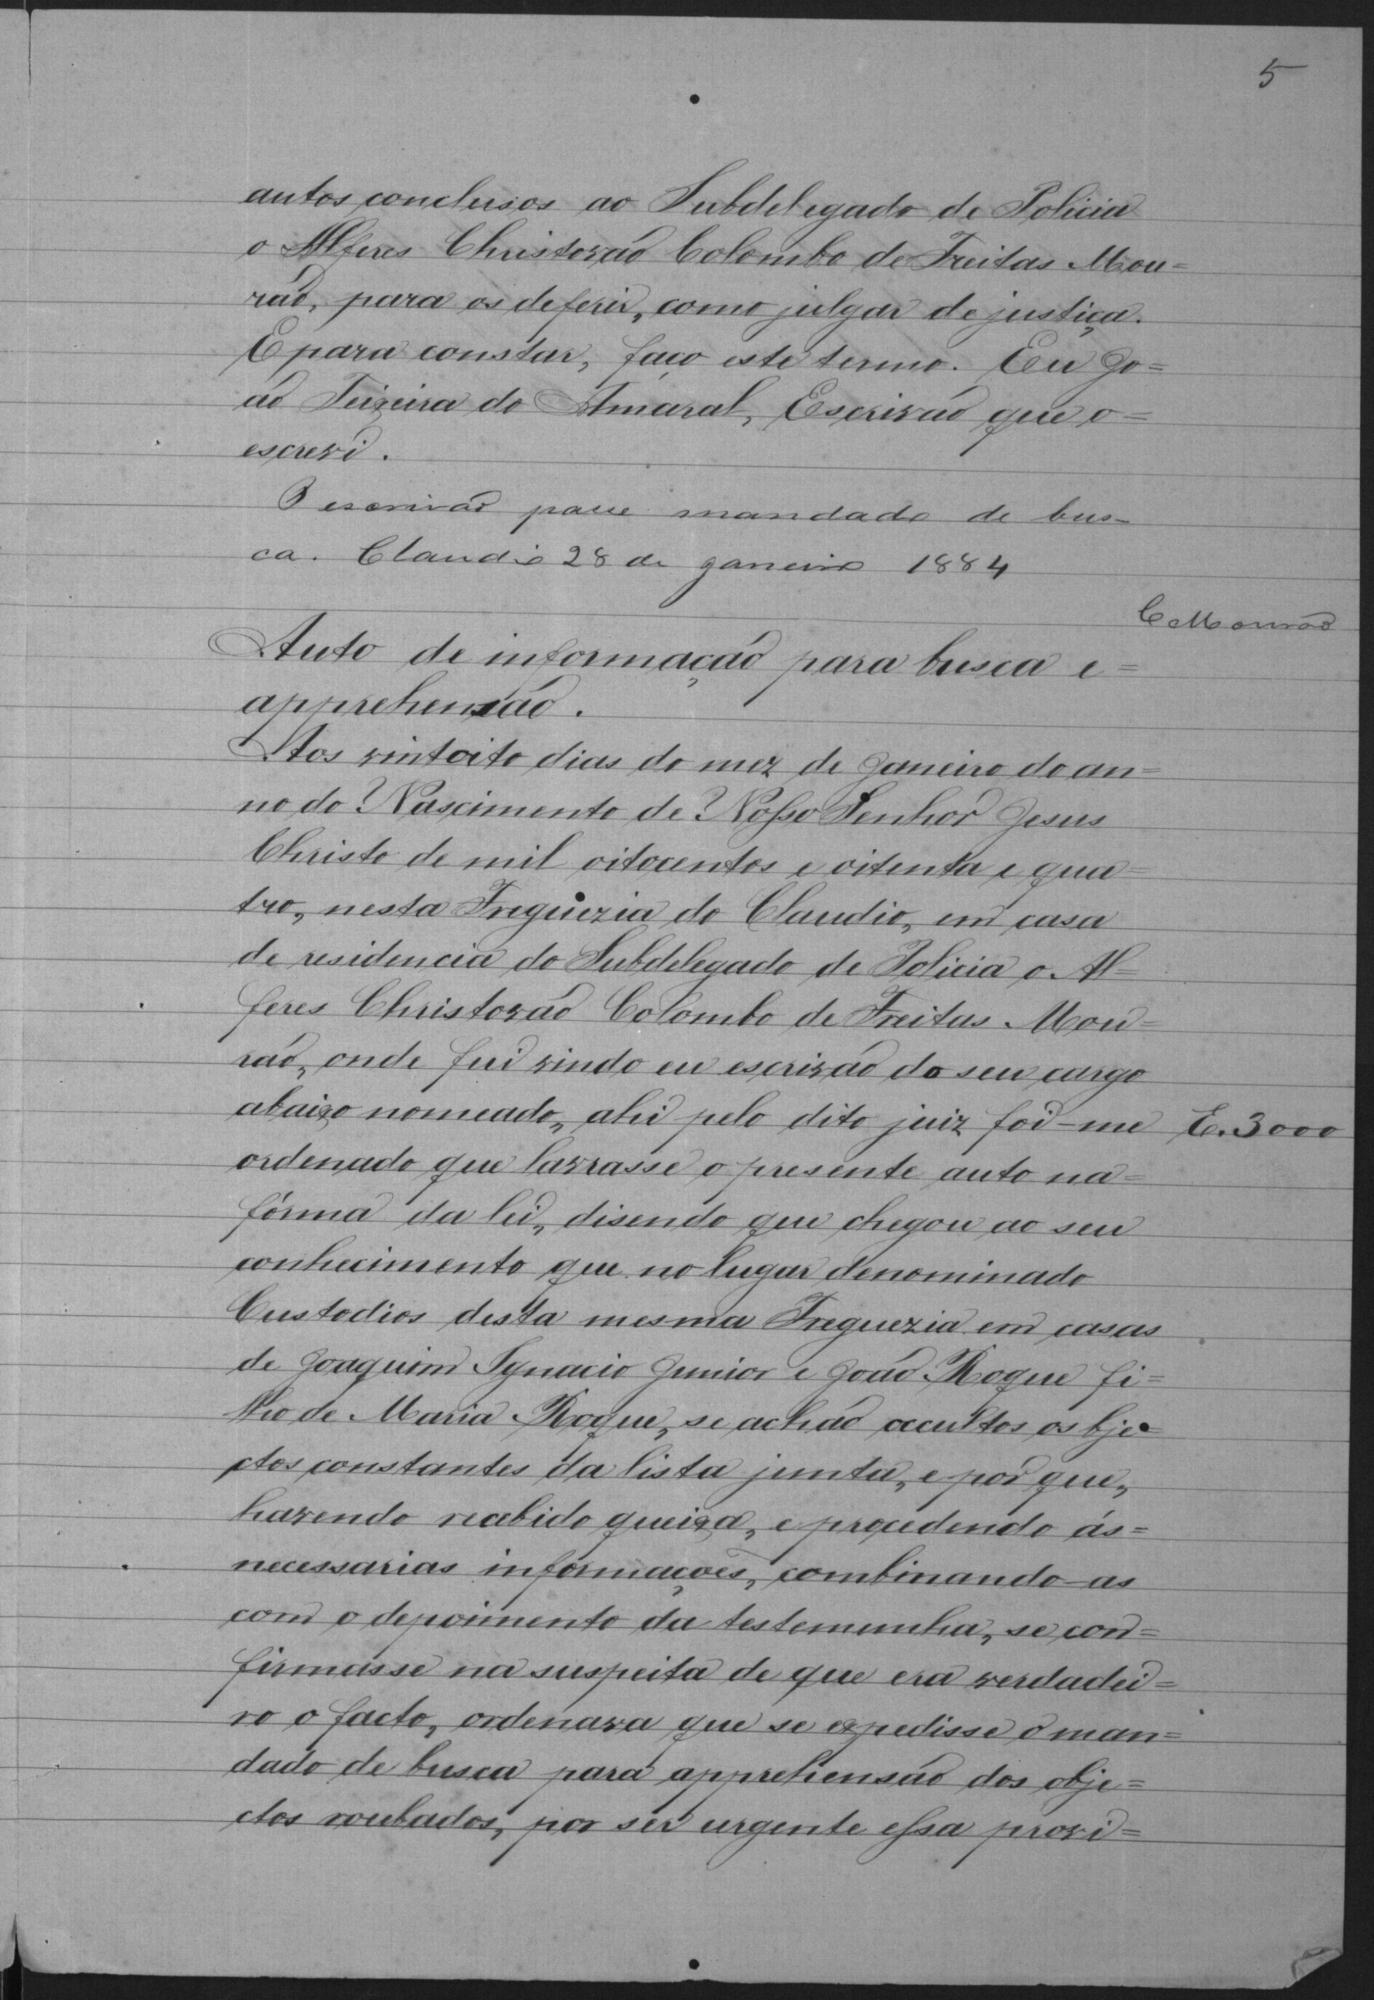 5
autos conclusos ao Subdelegado de Policia
o Alferes Christovão Colombo de Freitas Mou=
rão, para os deferir, como julgar de justiça.
E para constar, faço este termo. Eu Jo=
ão Teixeira do Amaral, Escrivão que o=
escrevi.
O escrivão passe mandado de bus=
ca. Claudio 28 de janeiro 1884
C Mourão
Auto de informação para busca e=
apprehensão.
Aos vintoito dias do mez de Janeiro do an=
no do Nascimento de Nosso Senhor Jesus
Christo de mil oitocentos e oitenta e qua=
tro, nesta Freguezia do Claudio, em casa
de residencia do Subdelegado de Policia o Al=
feres Christovão Colombo de Freitas Mou=
rão, onde fui vindo eu escrivão do seu cargo
abaixo nomeado, ahi pelo dito juiz foi-me E. 3000
ordenado que lavrasse o presente auto na=
fórma da lei, disendo que chegou ao seu
conhecimento que no lugar denominado
Custodios desta mesma Freguezia em casas
de Joaquim Ignacio Junior e João Roque fi=
lho de Maria Roque, se achão occultos os bje=
ctos constantes da lista junta, e por que,
havendo recebido queixa, e procedendo ás=
necessarias informações, combinando-as
com o depoimento da testemunha, se con=
firmasse na suspeita de que era verdadei=
ro o facto, ordenava que se expedisse o man=
dado de busca para apprehensão dos obje=
ctos roubados, por ser urgente essa provi=